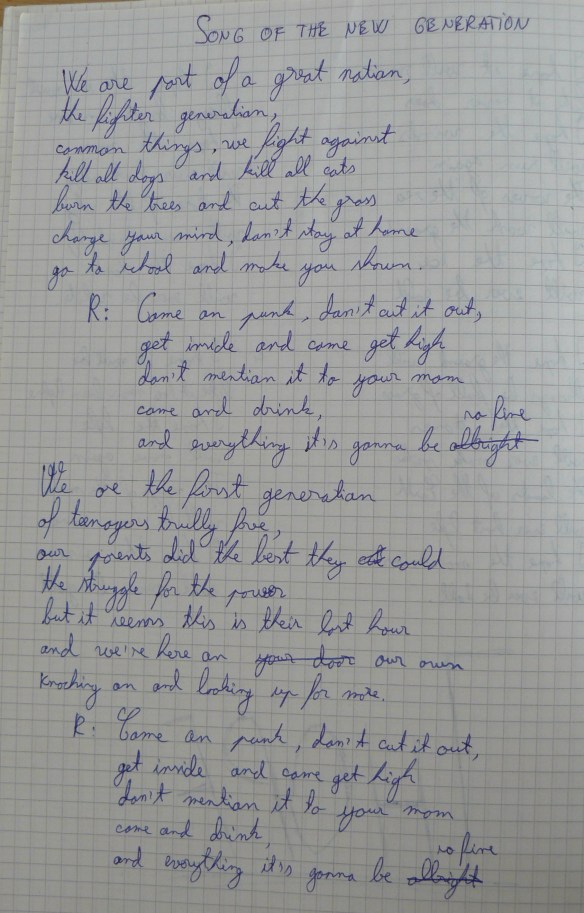 SONG OF THE NEW GENERATION
We are part of a great nation,
the fighter generation,
common things, we fight against
kill all dogs and kill all cats
burn the trees and cut the grass
change your mind, don't stay at home
go to school and make you shown.
R: Come on punk, don't cut it out,
get inside and come get high
don't mention it to your mom
come and drink,
so fine
and everything it's gonna be albright
We are the first generation
of teenagers trully free,
our parents did the best they could
the struggle for the power
but it seems this is their last hour
and we're here on your door our own
knocking on and looking up for more.
R: Come on punk, don't cut it out,
get inside and come get high
don't mention it to your mom
come and drink,
so fine
and everything it's gonna be allright